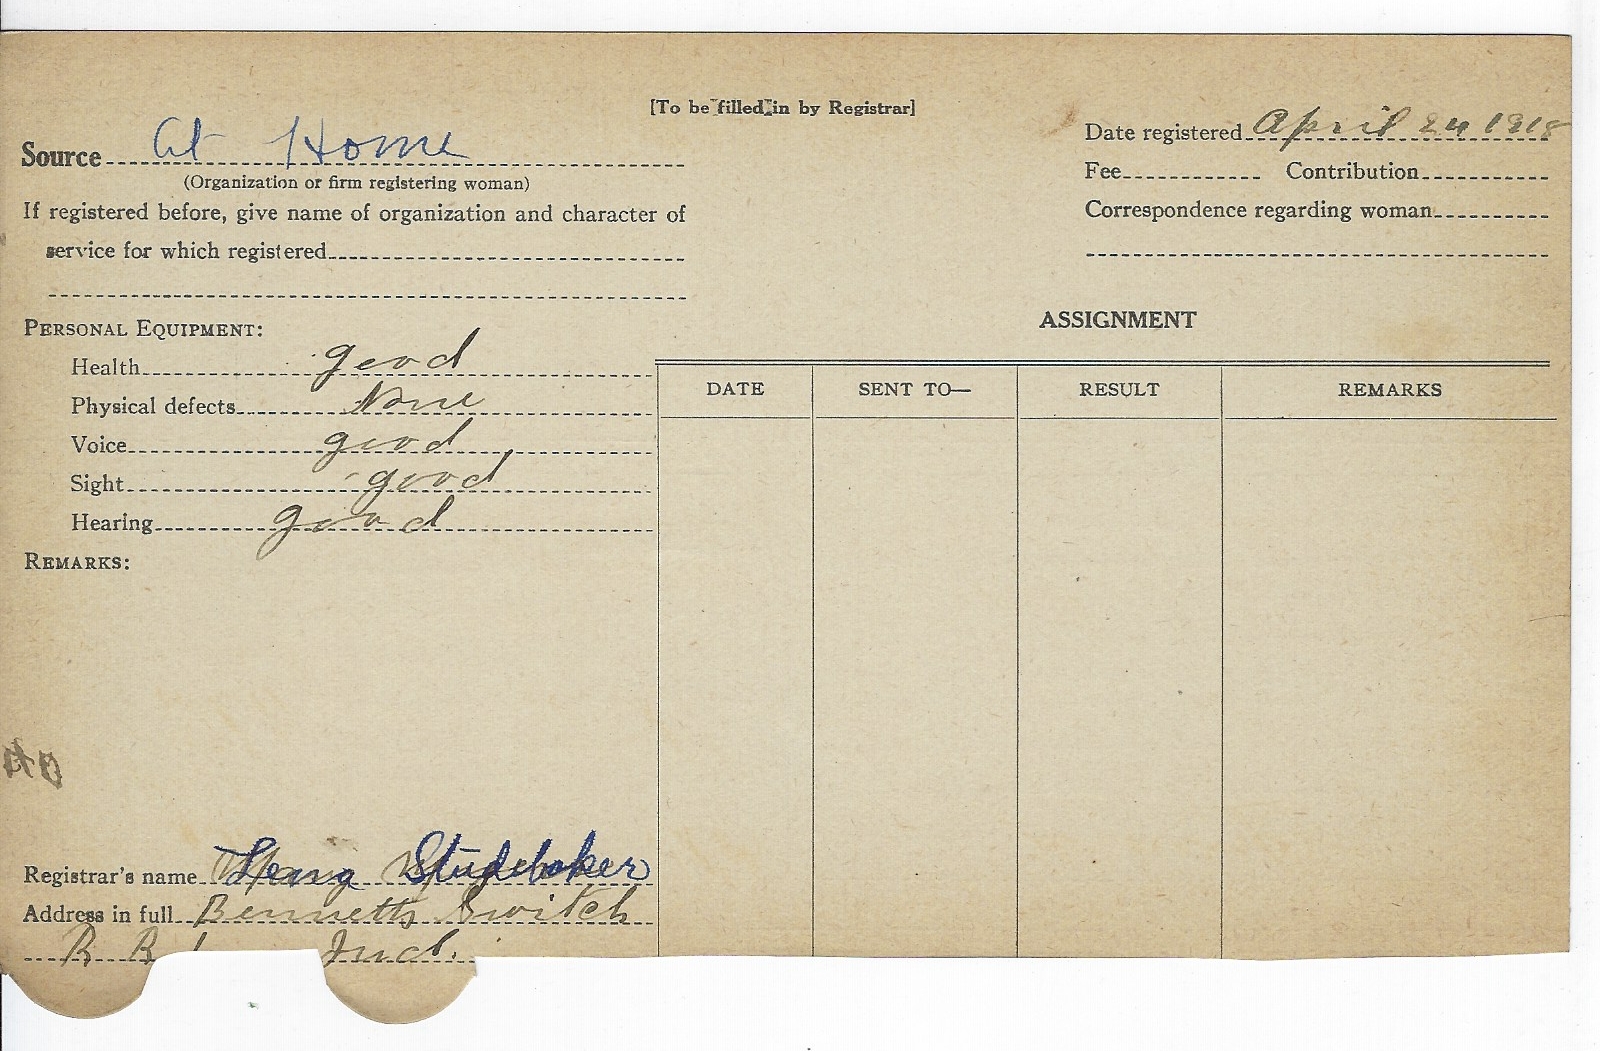 [To be filled in by Registrar]
Source At Home
(Organization or firm registering woman)
If registered before, give name of organization and character of
service for which registered
Date registered April 24 1918
Fee Contribution
Correspondence regarding woman
PERSONAL EQUIPMENT:
Health good
Physical defects None
Voice good
Sight good
Hearing good
REMARKS:
ASSIGNMENT
DATE SENT TO— RESULT REMARKS
Registrar's name Studebaker
Address in full Bennetts Switch
R R 1 Ind.